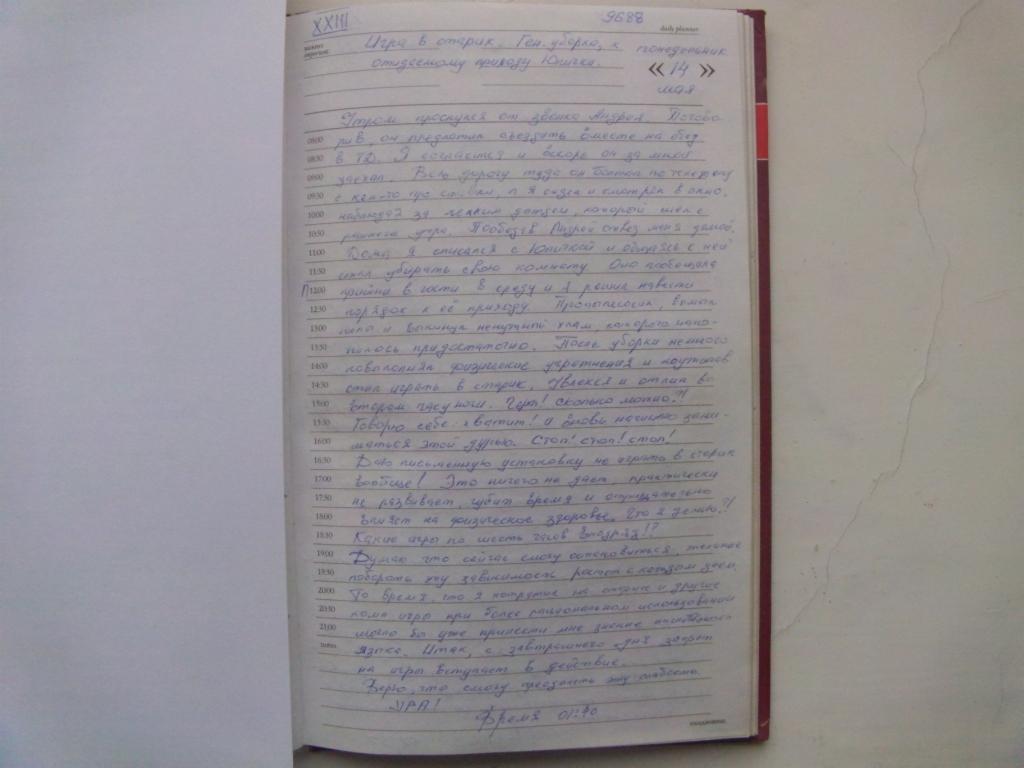 XXIII
9688
важно
important
daily planner
Игра в старик. Ген. уборка, к
ожидаемому приходу Юлички.
понедельник
« 14 »
мая
Утром проснулся от звонка Андрея. Погово-
рив, он предложил съездить вместе на обед
08:00
в ТД. Я согласился и вскоре он за мной
08:30
заехал. Всю дорогу туда он болтал по телефону
09:00
с кем-то а я сидел и смотрел в окно,
09:30
наблюдая за мелким дождём, который шёл с
10:00
раннего утра. Пообедав Андрей отвёз меня домой.
10:30
Дома я списался с Юличкой и общаясь с ней
11:00
убирать свою комнату. Она пообещала
11:30
прийти в гости в среду и я решил навести
12:00
порядок к её приходу. Пропылесосил,
12:30
и выкинул ненужный хлам, которого нако-
13:00
пилось предостаточно. После уборки немного
13:30
повыполнял физические упражнения и
14:00
стал играть в старик. Увлёкся и отлип во
14:30
втором часу ночи. Чёрт! Сколько можно?!
15:00
Говорю себе: хватит! и вновь начинаю зани-
15:30
маться этой дурью. Стоп! Стоп! Стоп!
16:00
Даю письменную установку не играть в старик
16:30
вообще! Это ничего не даёт, практически
17:00
не развивает, губит время и отрицательно
17:30
влияет на физическое здоровье. Что я делаю?!
18:00
Какие игры по шесть часов подряд!?
18:30
Думаю что сейчас смогу остановиться, желание
19:00
побороть эту зависимость растёт с каждым днём.
19:30
То время, что я потратил на старик и другие
20:00
комп. игры при более рациональном использовании
20:30
могло бы уже принести мне знание английского
21:00
языка. Итак, с завтрашнего дня запрет
на игры вступает в действие.
Верю, что смогу преодолеть эту слабость.
УРА!
Время 01:40